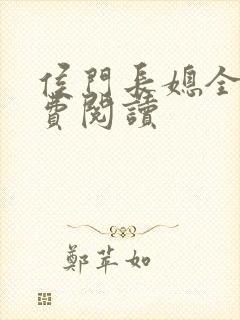 侯門長媳全
費閱讀
鄭苹如